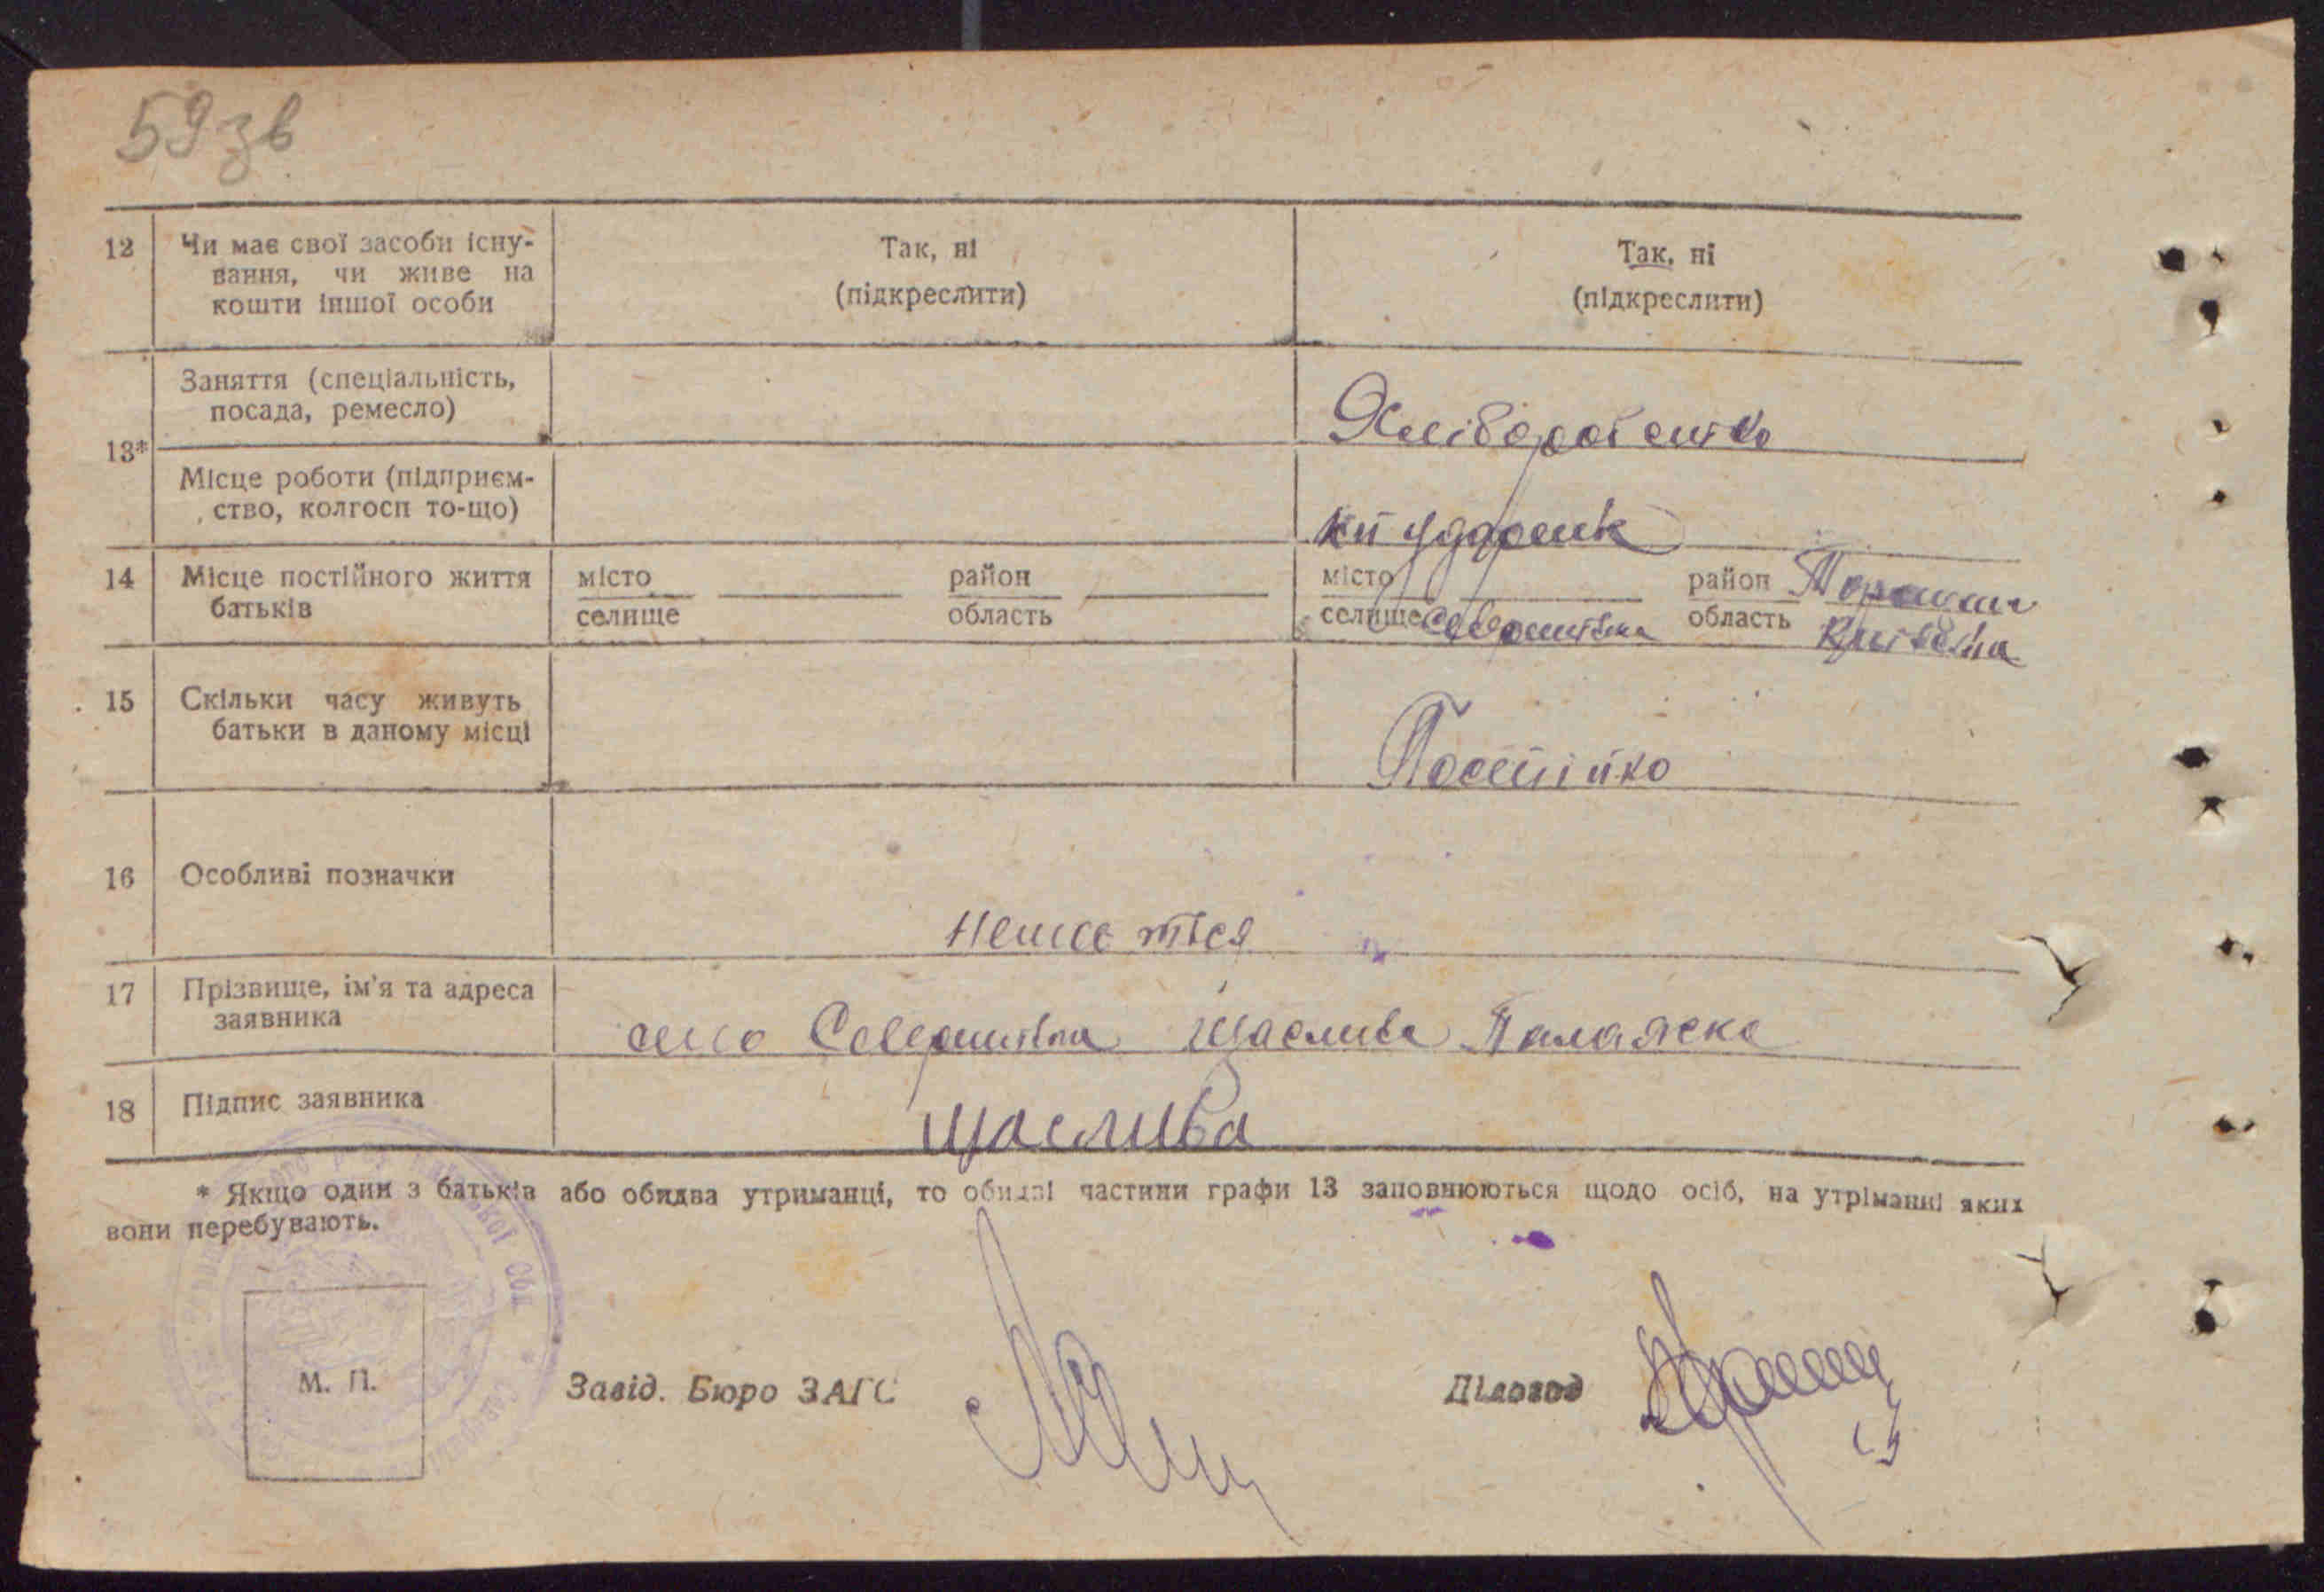 59 зв
12 Чи має свої засоби існу-
вання, чи живе на
кошти іншої особи
Так, ні
(підкреслити)
Так, ні
(підкреслити)
13*
Заняття (спеціальність,
посада, ремесло)
Хліборобство
Місце роботи (підприєм-
ство, колгосп то-що)
кп ударник
14 Місце постійного життя
батьків
місто
селище
район
область
місто
селище
район
область
15 Скільки часу живуть
батьки в даному місці
Постійно
16 Особливі позначки
Немається
17 Прізвище, ім'я та адреса
заявника
село Северинівка Щаслива Палажка
18 Підпис заявника
Щаслива
* Якщо один з батьків або обидва утриманці, то обидві частини графи 13 заповнюються щодо осіб, на утріманні яких
вони перебувають.
М. П.
Завід. Бюро ЗАГС
Діловод